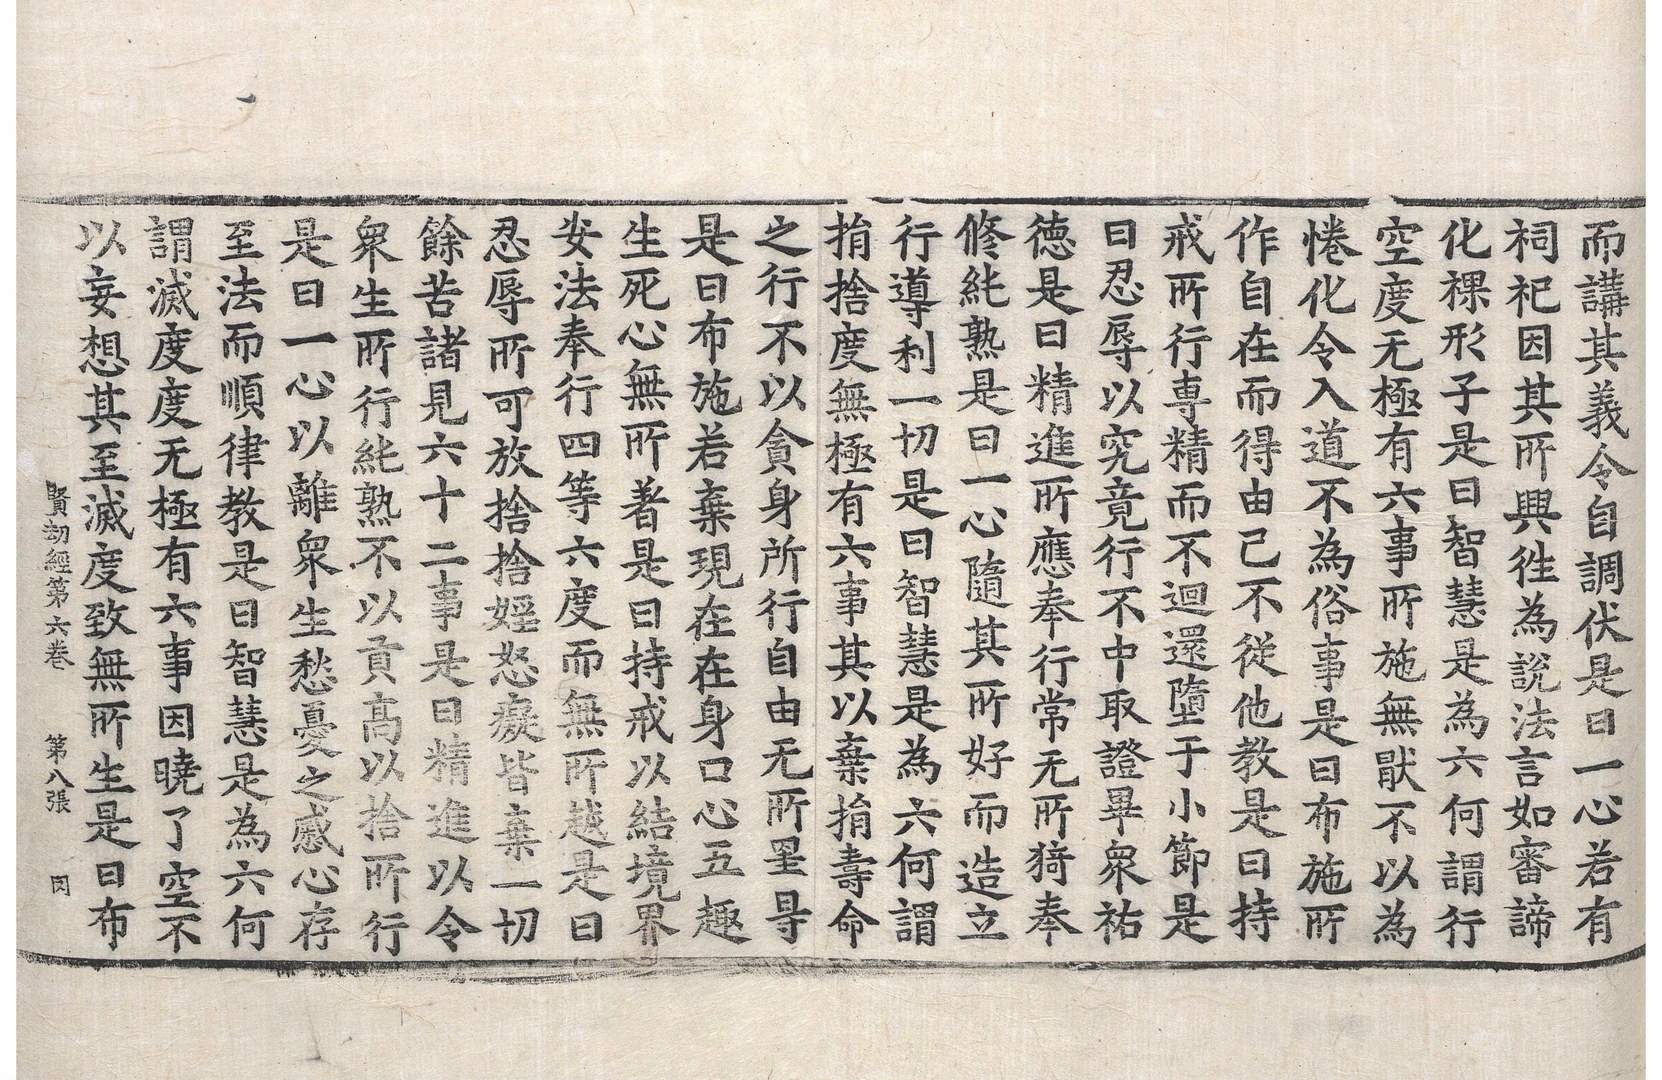 而講其義令自調伏是曰一心若有
祠祀因其所興徃為說法言如審諦
化裸形子是曰智慧是為六何謂行
空度无極有六事所施無猒不以為
惓化令入道不為俗事是曰布施所
作自在而得由己不從他教是曰持
戒所行專精而不迴還墮于小節是
曰忍辱以究竟行不中取證畢衆祐
德是曰精進所應奉行常无所猗奉
修純熟是曰一心隨其所好而造立
行導利一切是曰智慧是為六何謂
捐捨度無極有六事其以棄捐壽命
之行不以貪身所行自由无所罣㝵
是曰布施若棄現在在身口心五趣
生死心無所著是曰持戒以結境界
安法奉行四等六度而無所越是曰
忍辱所可放捨捨婬怒癡皆棄一切
餘苦諸見六十二事是曰精進以令
衆生所行純熟不以貢高以捨所行
是曰一心以離衆生愁憂之慼心存
至法而順律教是曰智慧是為六何
謂滅度度无極有六事因曉了空不
以妄想其至滅度致無所生是曰布
賢劫經第六卷 第八張